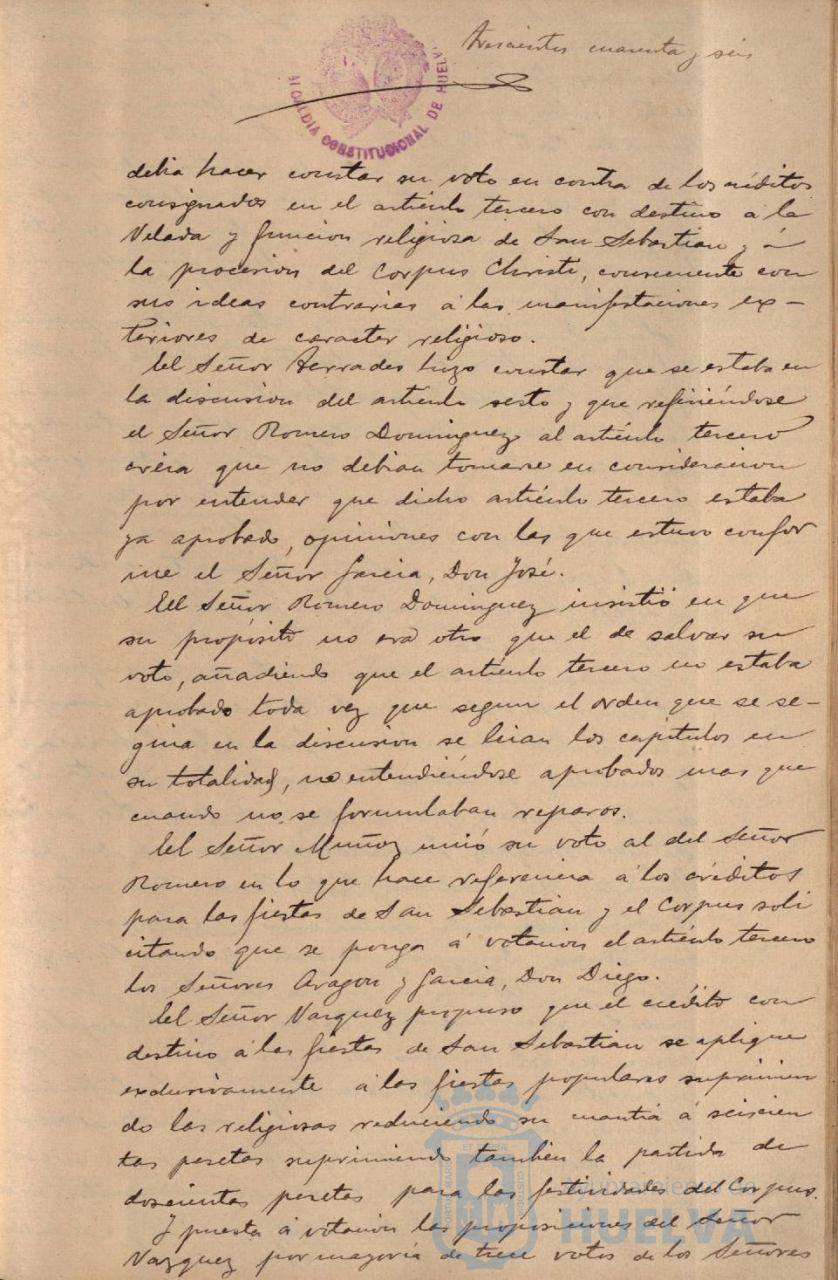 trescientos cuarenta y seis
ALCALDIA CONSTITUCIONAL DE HUELVA
debia hacer constar su voto en contra de los créditos
consignados en el artículo tercero con destino á la
Velada y funcion religiosa de San Sebastian y á
la procesion del Corpus Christi, consecuente con
sus ideas contrarias á las manifestaciones ex-
teriores de caracter religioso.
El Señor Terrades hizo constar que se estaba en
la discusion del artículo sesto y que refiriéndose
el Señor Romero Dominguez al artículo tercero
creia que no debian tomarse en consideracion
por entender que dicho artículo tercero estaba
ya aprobado, opiniones con las que estuvo confor
me el Señor Garcia, Don José.
El Señor Romero Dominguez insistió en que
su propósito no era otro que el de salvar su
voto, añadiendo que el artículo tercero no estaba
aprobado toda vez que segun el orden que se se-
guia en la discusion se leian los capitulos en
su totalidad, no entendiéndose aprobados mas que
cuando no se formulaban reparos.
El Señor Muñoz unió su voto al del Señor
Romero en lo que hace referencia á los créditos
para las fiestas de San Sebastian y el Corpus soli
citando que se ponga á votacion el artículo tercero
los Señores Aragon y Garcia, Don Diego.
El Señor Vazquez propuso que el crédito con
destino á las fiestas de San Sebastian se aplique
exclusivamente á las fiestas populares suprimien
do las religiosas reduciendo su cuantia á seiscien
tas pesetas suprimiendo tambien la partida de
doscientas pesetas para las festividades del Corpus.
Y puesta á votacion las proposiciones del Señor
Vazquez por mayoría de trece votos de los Señores
Ayuntamiento de
HUELVA